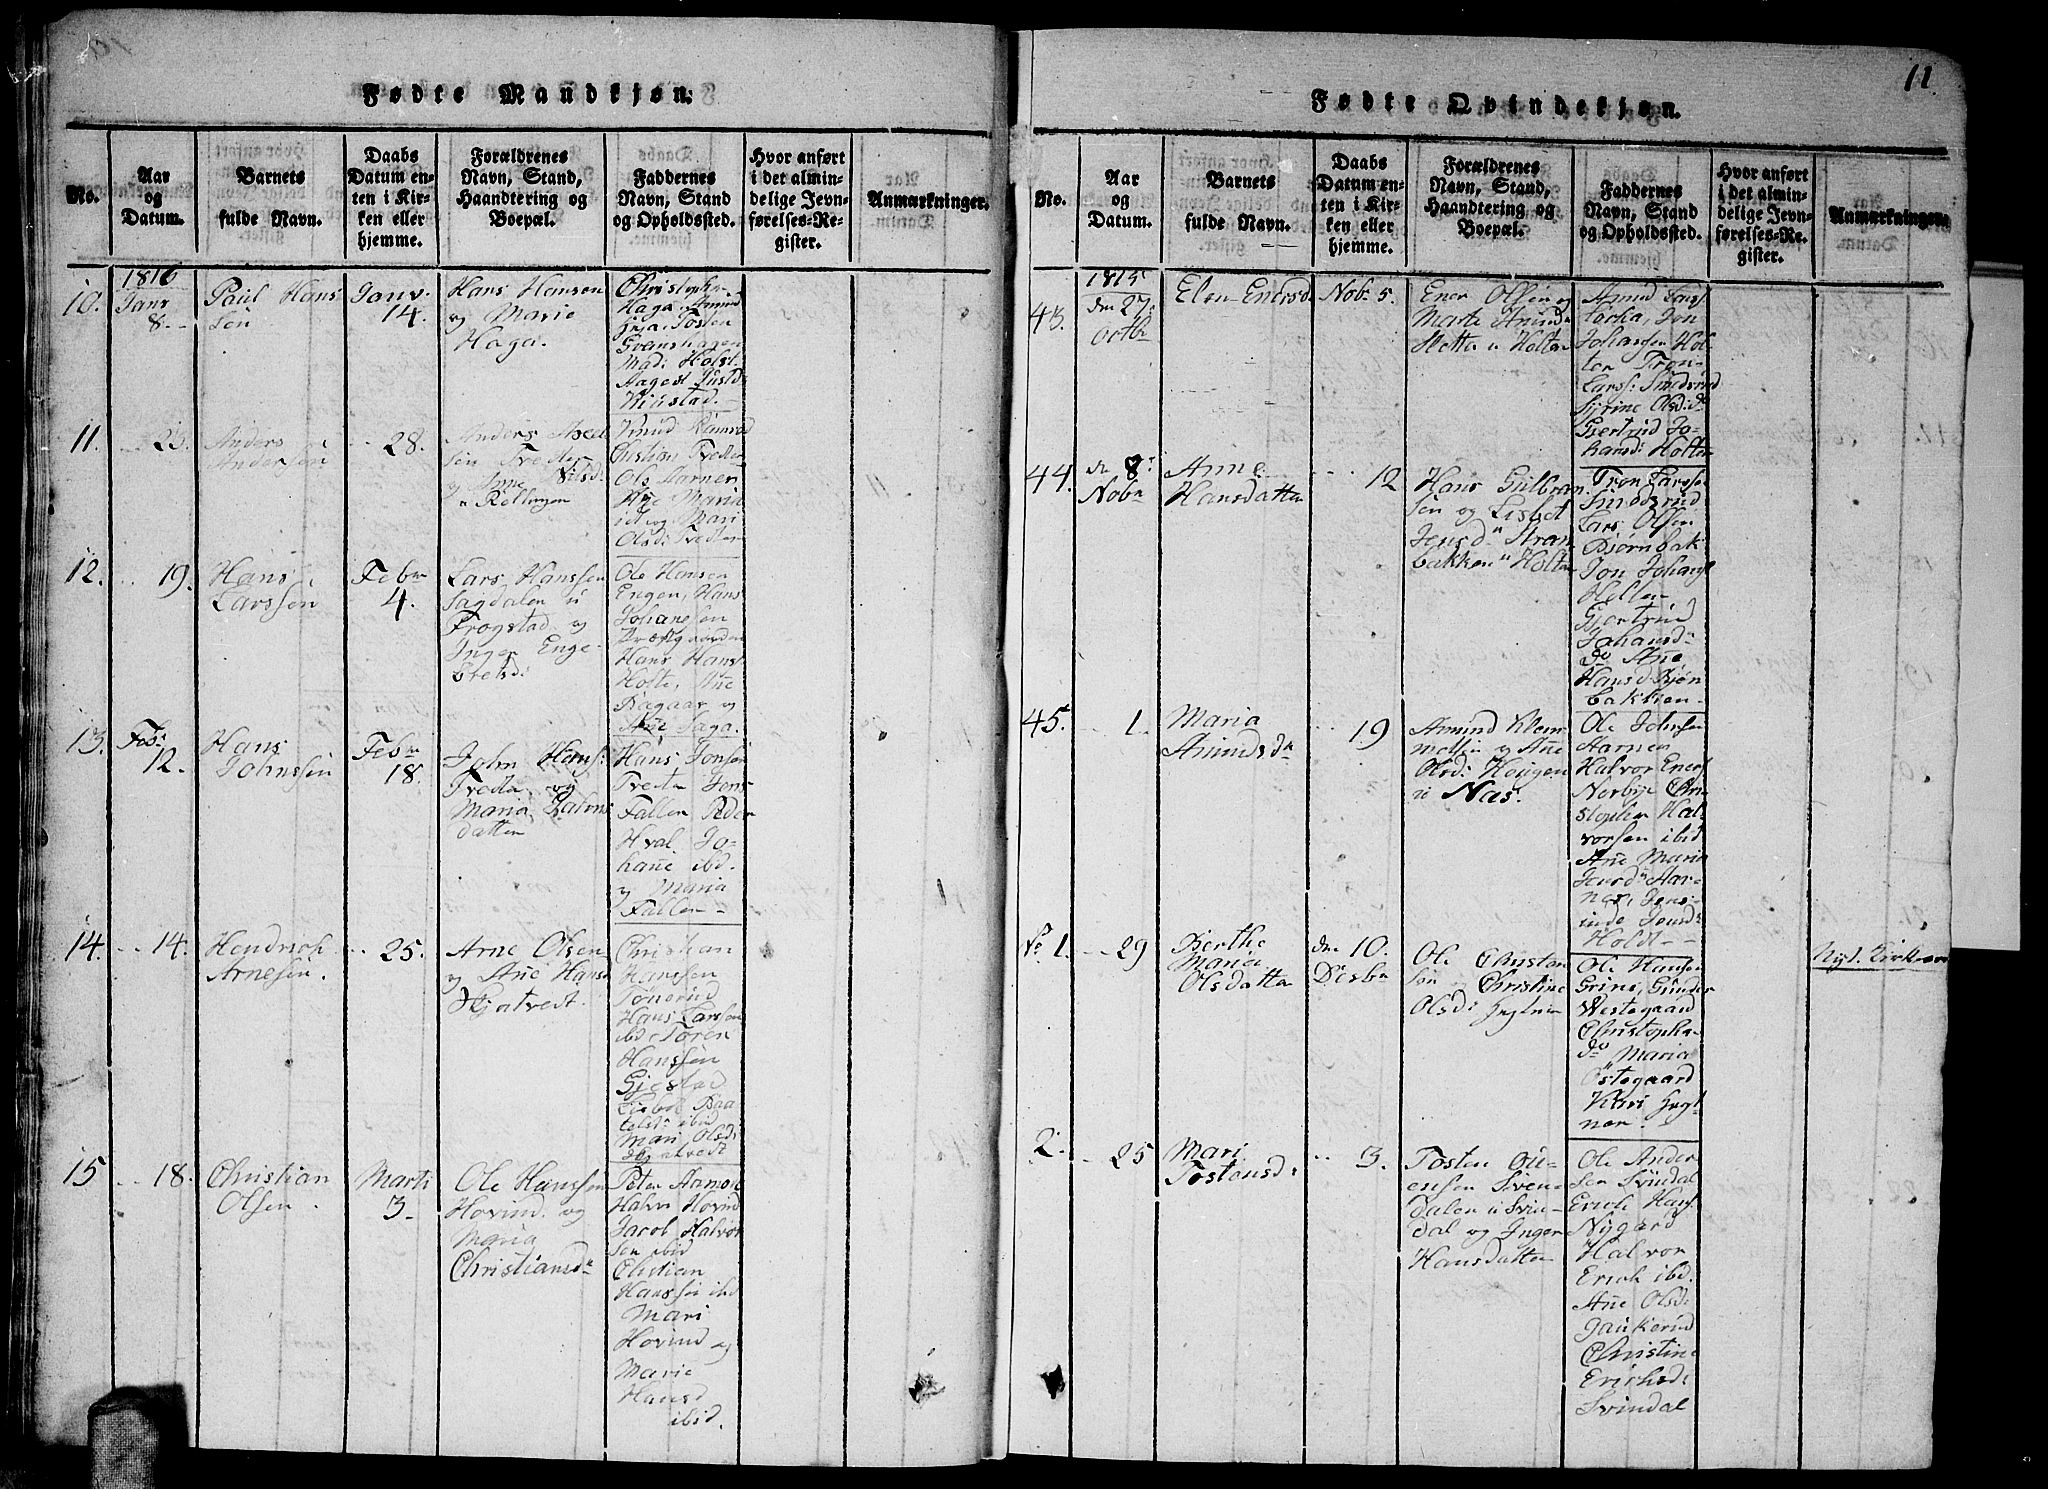 Fødte Mandkjøn.
No.
Aar
og
Datum.
Barnets
fulde Navn.
Daabs
Datum en-
ten i Kir-
ken eller
hjemme.
Forældrenes
Navn, Stand,
Haandtering og
Boepæl.
Faddernes
Navn, Stand
og Opholdssted.
Hvor anført
i det almin-
delige Jevn-
førelses-Re-
gister.
Anmærkninger.
10.
1816
Janr
8.
Paul Hans
Sön
Janv.
14.
Hans Hansen
og Marie
Haga.
Christopher
Haga, Amund
Tosten
Svenshagen
Mad: Holst
11.
23.
Anders
Andersen
28.
Anders
Christian Tveter
Ole Harner
Ane Maria
ibid og Mari
Olsd: Tveter
12.
19.
Hans
Larssen
Febr
4.
Lars Hanssen
Sagdalen u
Frogstad og
Inger Enge-
bretsd:
Ole Hansen
Engen, Hans
Johanesen
Præstgaarden
Hans Hans:
Holte, Ane
Bagaas og
Ane Saga.
13.
Feb:
12.
Hans
Johnssen
Febr
18.
John Hans:
Tveta og
Maria Halvors
datter
Hans Jonsen
Tveta Jens
Fallen Peder
Hval Jo-
hane ibid.
og Maria
Fallen
14.
14.
Hendrich
Arnesen.
25.
Arne Olsen
og Ane Hansd
Skjatvedt.
Christian
Hanssen
Tönsrud
Hans Larssen
ibid Toren
Hanssen
Gjestad
ibid
Mari Olsd:
Skjatvedt
15
18.
Christian
Olsen.
Marti
3.
Ole Hanssen
Hovind og
Maria
Christiansd
Peter Aamon
Halvor Hovind
Jacob Halvor
sen ibid
Christian
Hanssen ibid
Mari
Hovind og
Marie
Hansd
ibid.
11.
Fødte Qvindekjøn.
No.
Aar
og
Datum.
Barnets
fulde Navn.
Daabs
Datum en-
ten i Kir-
ken eller
hjemme.
Forældrenes
Navn, Stand,
Haandtering og
Boepæl.
Faddernes
Navn, Stand
og Opholdssted.
Hvor anført
i det almin-
delige Jevn-
førelses-Re-
gister.
Anmærkninger.
43.
1815
den 27:
octbr
Elen Enersd.
Nobr 5.
Ener Olsen og
Marte Amund
Sletta u Holter
Amund Lars:
Jon
Johansen Hol-
ter Tron
Lars: Smedsrud
Syrine Olsd: do
Gjertrud Jo-
hansd: Holter
44.
den 8:
Nobr
Anne
Hansdatter
12
Hans Gulbran
sen og Lisbet
Jensd Stran
bakken u Holter
Tron Larssen
Smedsrud
Lars Olsen
Björnbak
Jon Johans:
Holter
Gjertrud
Johansd
do Ane
Hansd Björn
bakken
45.
1.
Maria
Amundsdr
19
Amund Klem
metsen og Ane
Olsd: Hougen
u Nas.
Ole Johnsen
Harner
Halvor Eners:
Norbye Chri
stopher Hal
vorsen ibid
Ane Maria
Jensd Har-
ner, Jens-
Jensd:
Holt
No 1.
29
Berthe
Maria
Olsdatter
den 10.
Desbr
Ole Christen
sön og Christine
Olsd:
Ole Hansen
Grini, Gunder
Westegaard
Christopher
do Maria
Östegaard
Kari
Nyt. Kirkeaar
2.
25
Mari
Tostensd:
3.
Tosten Gu-
ensen Sven-
dalen u Svin-
dal og Inger
Hansdatter
Ole Ander
sen Svindal
Erich Hans:
Nygard
Halvor
Erich ibid.
Ane Olsd:
Christine
Erichsd:
Svindal